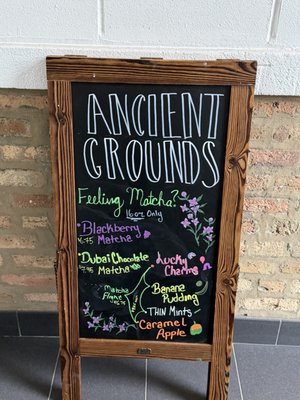 ANCIENT
GROUNDS
Feeling Matcha?
16oz Only
Blackberry
Matcha
Dubai Chocolate
Matcha
Lucky
Charms
Banana
Pudding
Matcha
THIN Mints
Caramel
Apple